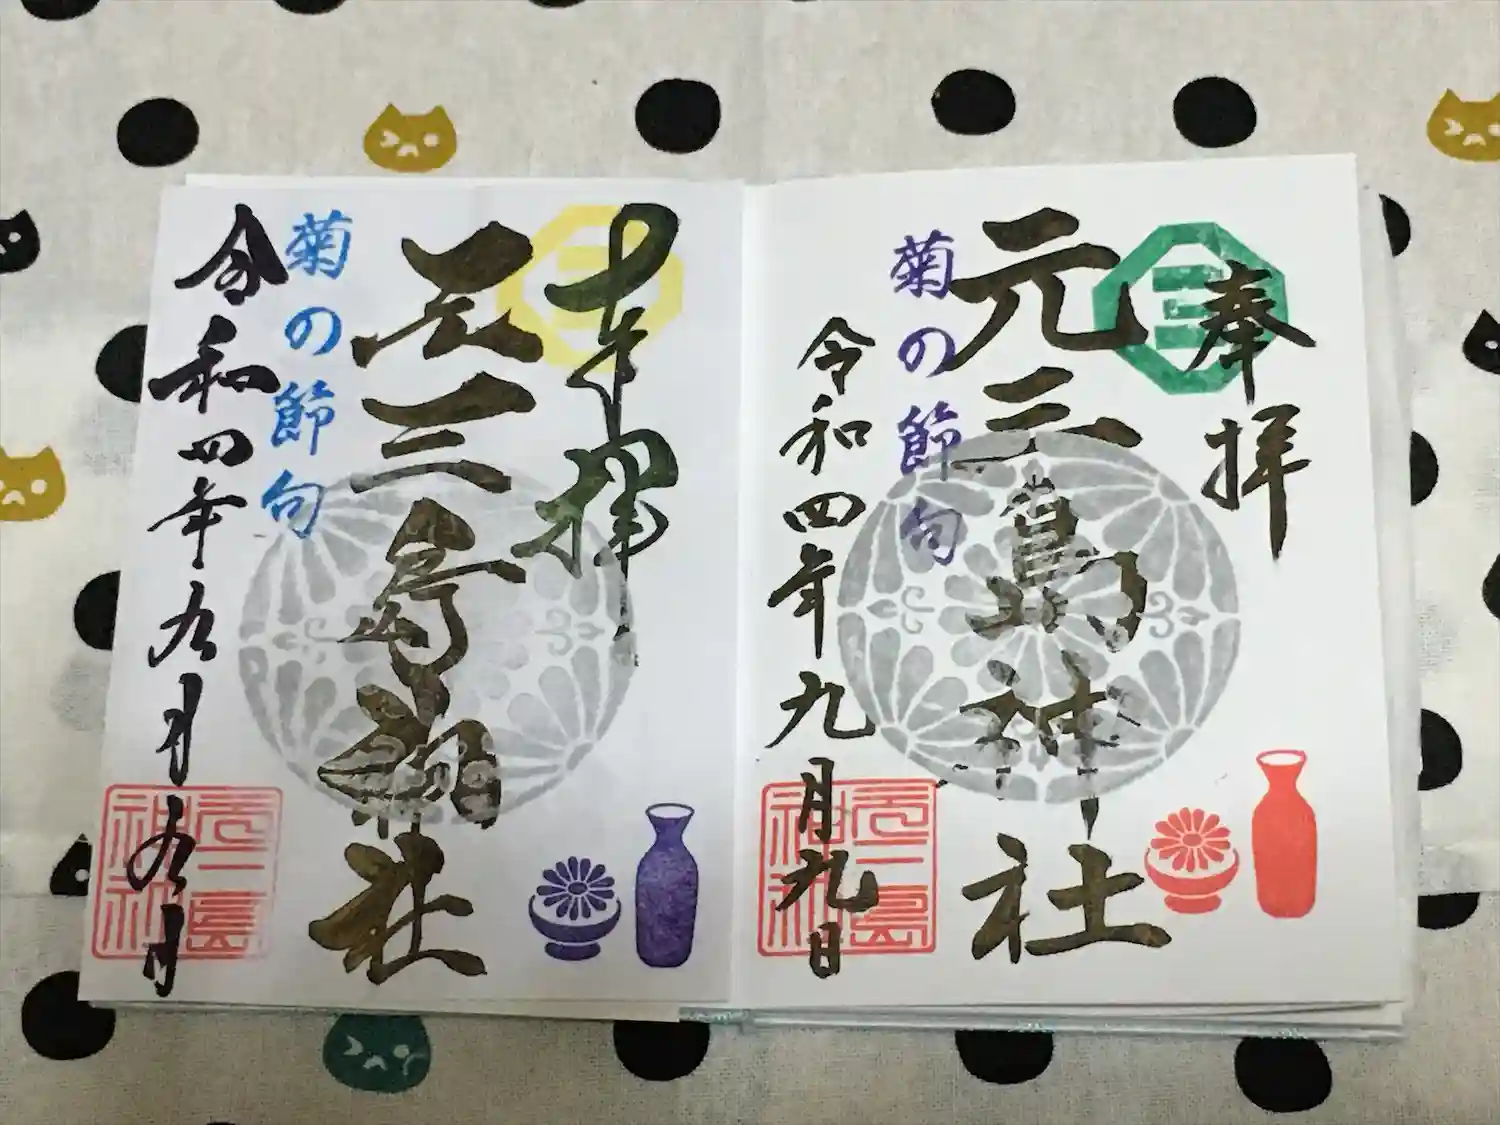 奉拝
元三島神社
菊の節句
令和四年九月九日
元三島神社
奉拝
元三島神社
菊の節句
令和四年九月九日
元三島神社